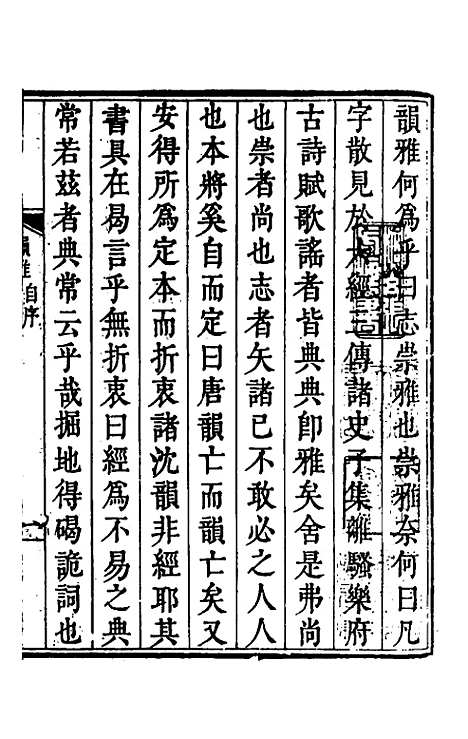 韻雅何爲乎曰志崇雅也崇雅奈何曰凡
字散見於六經三傳諸史子集離騷樂府
古詩賦歌謠者皆典典卽雅矣舍是弗尚
也崇者尚也志者矢諸已不敢必之人人
也本將奚自而定曰唐韻亡而韻亡矣又
安得所爲定本而折衷諸沈韻非經耶其
書具在曷言乎無折衷曰經爲不易之典
常若茲者典常云乎哉掘地得碣詭詞也
韻雅 自序